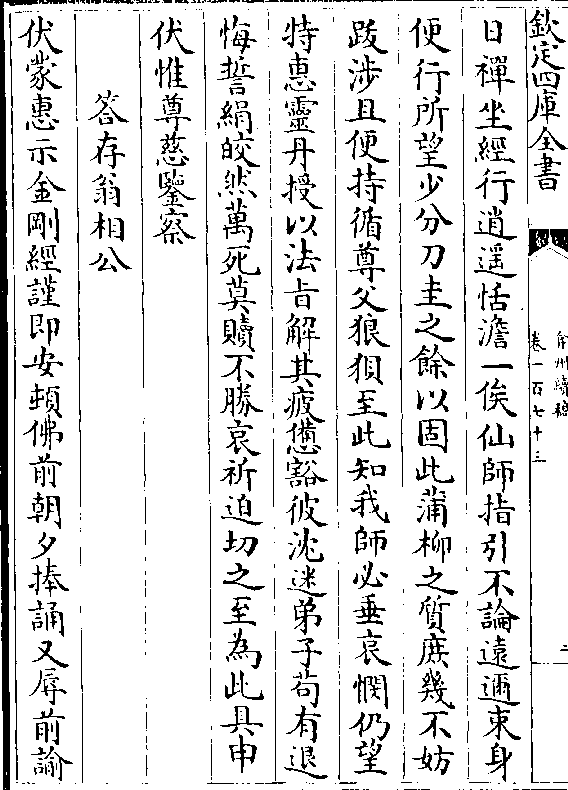 欽定四庫全書
弇州續稿
卷一百七十三
二
日禪坐經行逍遥恬澹一俟仙師指引不論遠邇束身
便行所望少分刀圭之餘以固此蒲柳之質庶幾不妨
跋涉且便持循尊父狼狽至此知我師必垂哀憫仍望
特惠靈丹授以法旨解其疲憊豁彼沈迷弟子茍有退
悔誓絹皎然萬死莫贖不勝哀祈迫切之至為此具申
伏惟尊慈鑒察
答存翁相公
伏蒙惠示金剛經謹即安頓佛前朝夕捧誦又辱前諭